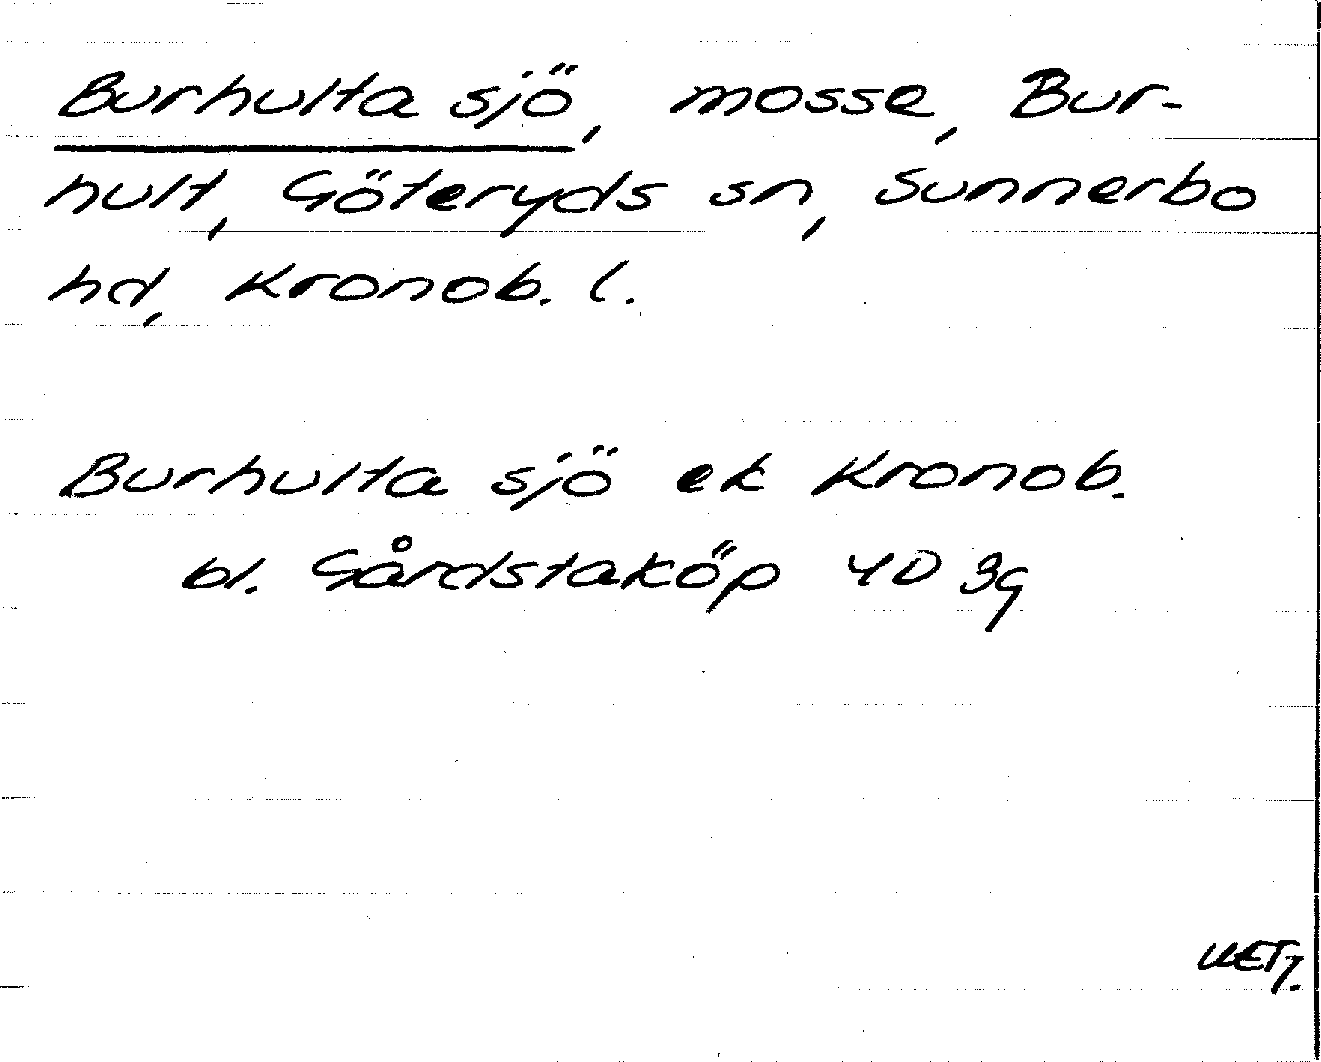 Burhulta sjö, mosse, Bur-
hult, Göteryds sn, Sunnerbo
hd, Kronob. l.
Burhulta sjö ek Kronob.
bl. Gårdstaköp 4D 3g